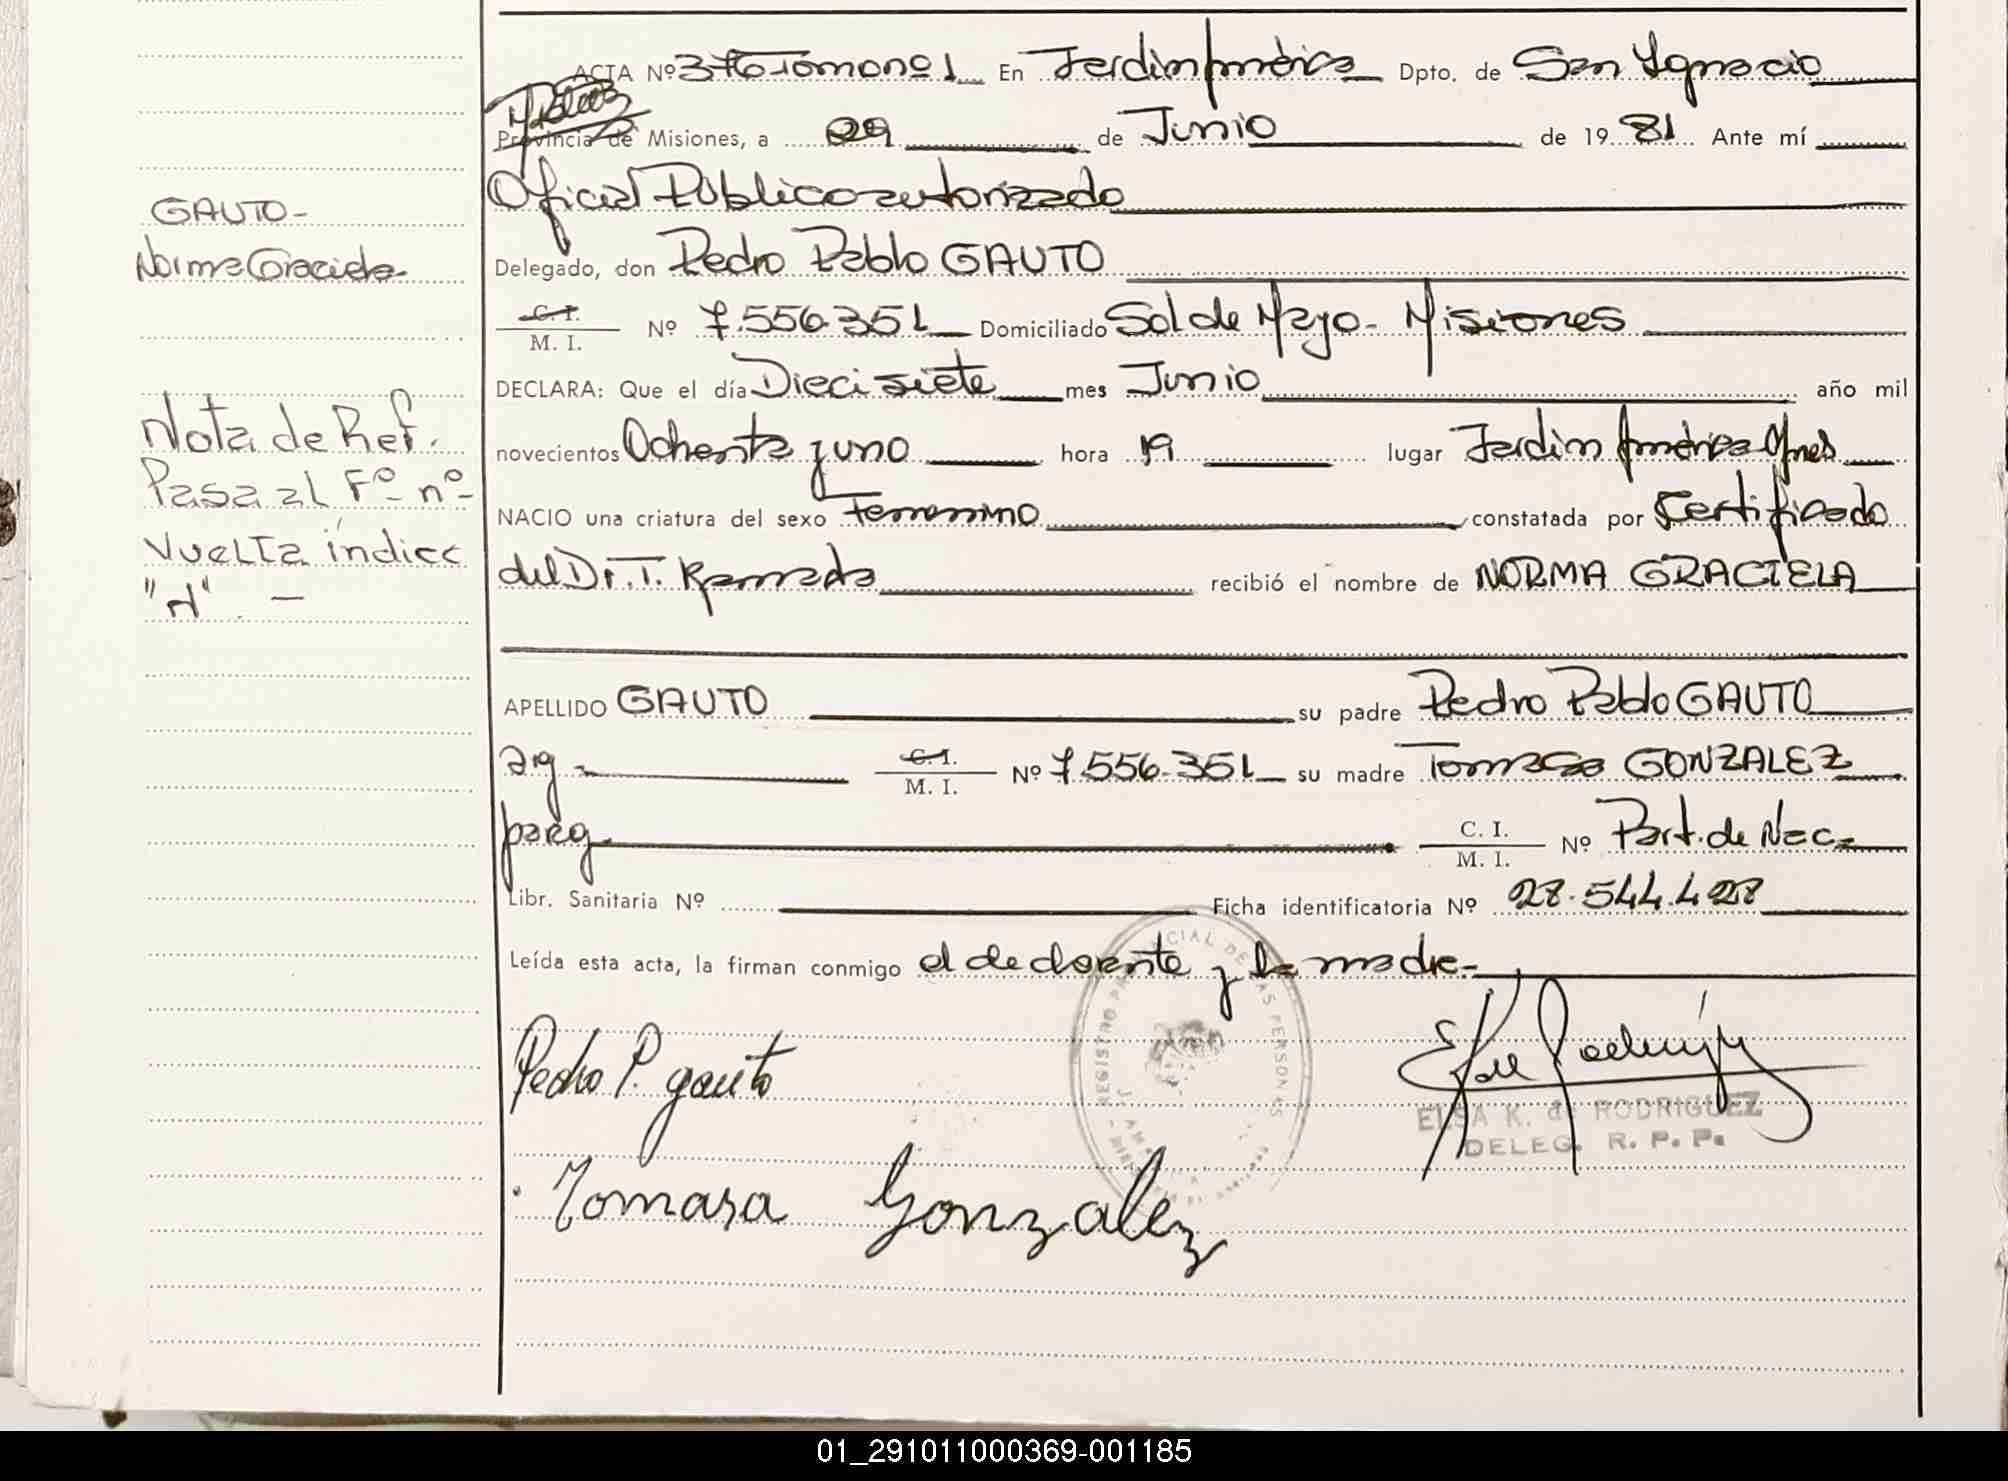 ACTA Nº 376 Tomo nº 1 En Jardin América Dpto. de San Ignacio
Provincia de Misiones, a 29 de Junio de 1981 Ante mí
Oficial Público autorizado
Delegado, don Pedro Pablo GAUTO
GAUTO-
Norma Graciela
C. I.
M. I. Nº 7.556.351 Domiciliado Sol de Mayo - Misiones
DECLARA: Que el día Diecisiete mes Junio año mil
novecientos Ochenta y uno hora 19 lugar Jardin América Mnes
NACIO una criatura del sexo Femenino constatada por Certificado
del Dr. T. Ramada recibió el nombre de NORMA GRACIELA
Nota de Ref.
Pasa al Fº nº
Vuelta índice
"H". —
APELLIDO GAUTO su padre Pedro Pablo GAUTO
arg - C. I.
M. I. Nº 7.556.351 su madre Tomasa GONZALEZ
parag. C. I.
M. I. Nº Part. de Nac.
Libr. Sanitaria Nº Ficha identificatoria Nº 28.544.428
Leída esta acta, la firman conmigo el declarante y la madre-
Pedro P. gauto
Tomasa Gonzalez
ELSA K. de RODRIGUEZ
DELEG. R. P. P.
01_291011000369-001185